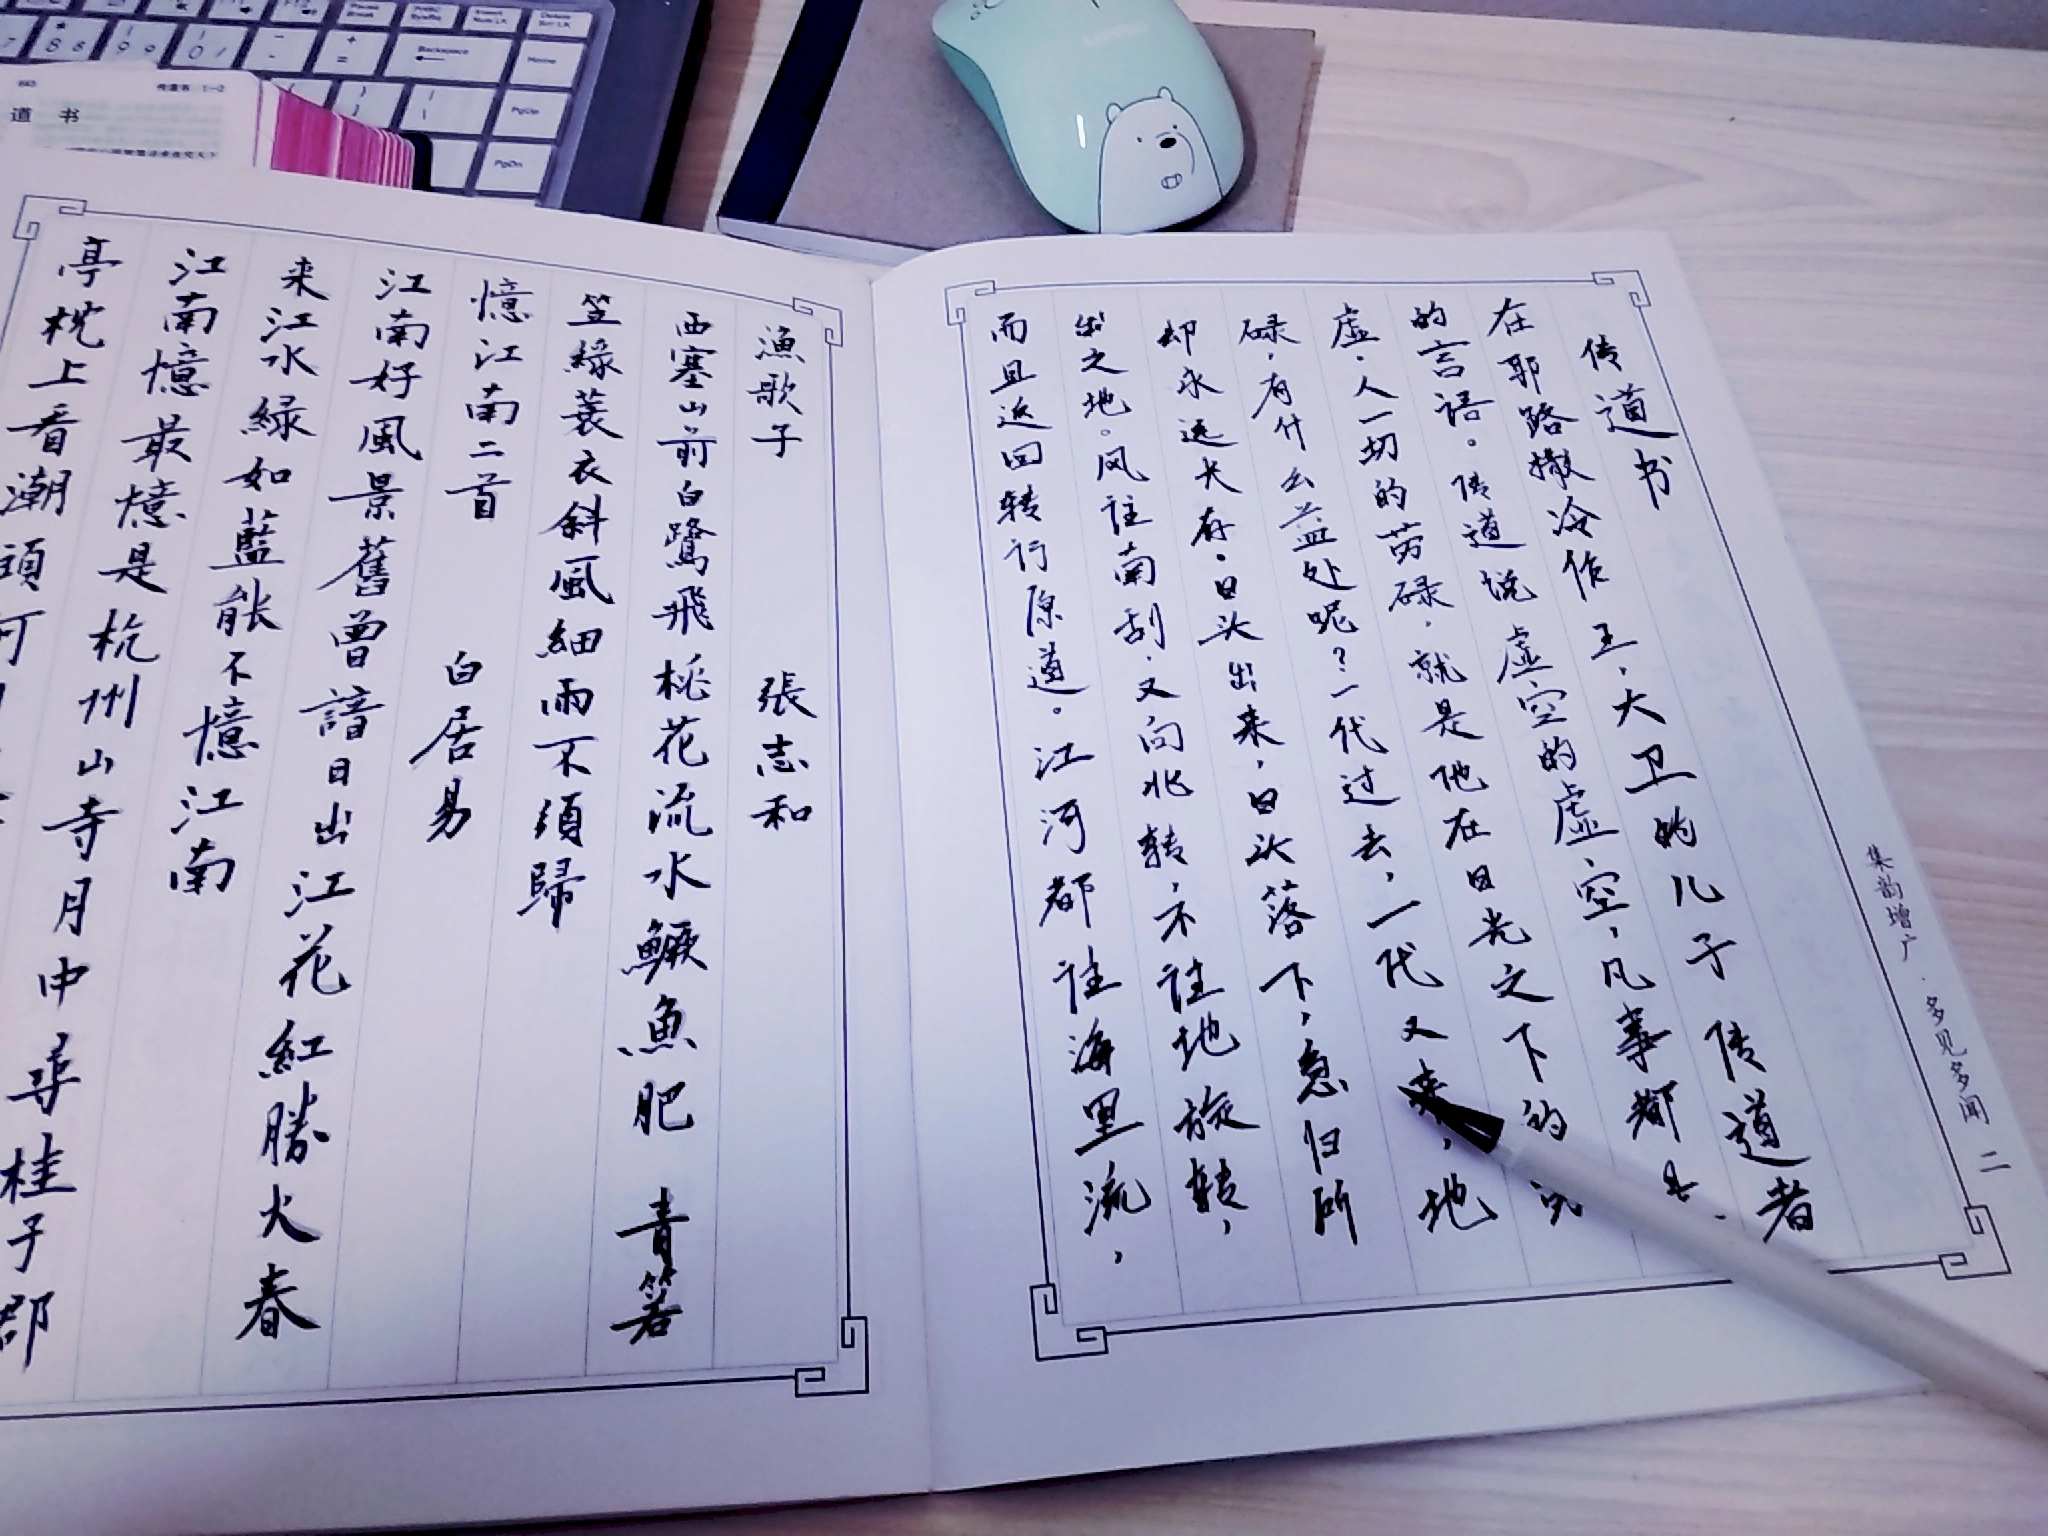 传道书
在耶路撒冷作王，大卫的儿子传道者
的言语。传道说虚空的虚空，凡事都
虚。人一切的劳碌，就是他在日光之下的
碌，有什么益处呢？一代过去，一代又来，地
却永远长存。日头出来，日头落下，急归所
出之地。风往南刮，又向北转，不住地旋转，
而且返回转行原道。江河都往海里流，
集韵增广·多见多闻 二
漁歌子 張志和
西塞山前白鷺飛桃花流水鱖魚肥 青箬
笠綠蓑衣斜風細雨不須歸
憶江南二首 白居易
江南好風景舊曾諳日出江花紅勝火春
来江水綠如藍能不憶江南
江南憶最憶是杭州山寺月中尋桂子郡
亭枕上看潮頭何
道书
传道书 1-2
Pause Break
Delete
Backspace
Home
PgUp
PgDn